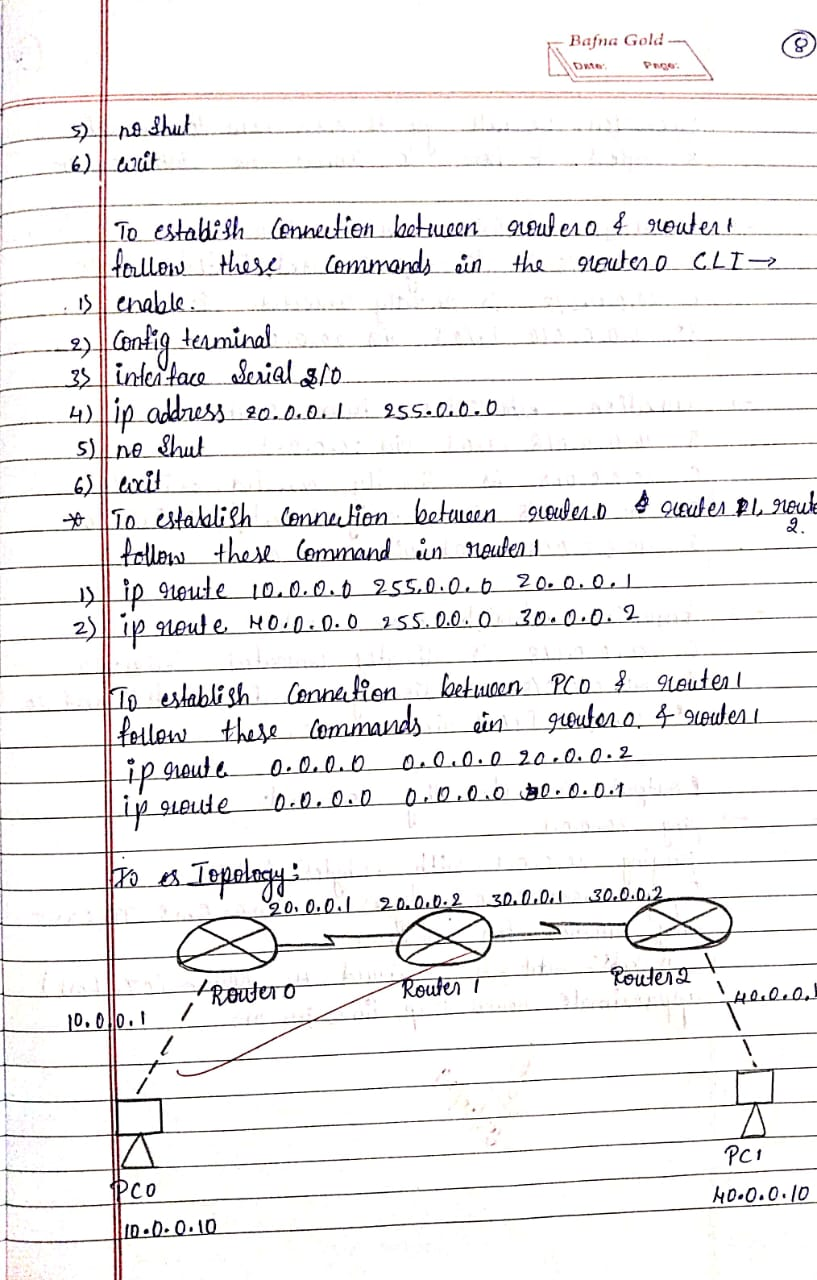 Bafna Gold
Date: Page:
8
5) no shut
6) exit
To establish connection between router0 & router1
follow these commands in the router0 CLI →
1) enable.
2) Config terminal
3) interface Serial 2/0
4) ip address 20.0.0.1 255.0.0.0
5) no shut
6) exit
* To establish connection between router0 & router 1, route
2.
follow these command in router1
1) ip route 10.0.0.0 255.0.0.0 20.0.0.1
2) ip route 40.0.0.0 255.0.0.0 30.0.0.2
To establish connection between PC0 & router1
follow these commands in router0 & router1
ip route 0.0.0.0 0.0.0.0 20.0.0.2
ip route 0.0.0.0 0.0.0.0 30.0.0.1
To es Topology:
20.0.0.1 20.0.0.2 30.0.0.1 30.0.0.2
Router0 Router 1 Router2
10.0.0.1 40.0.0.1
PC0 PC1
10.0.0.10 40.0.0.10